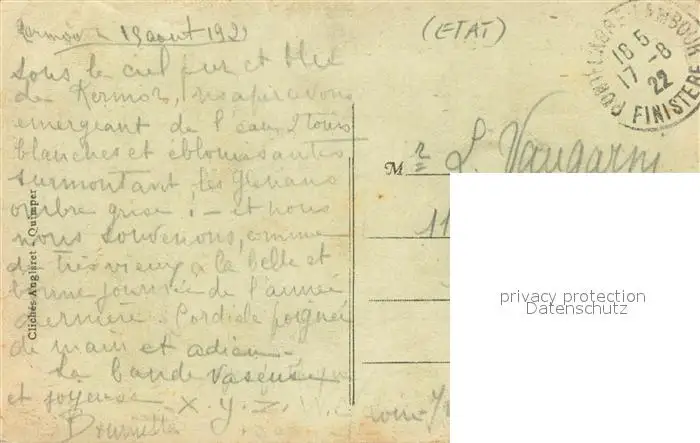 Kermor 15 août 192
sous le ciel pur et bleu
de Kermor, nous apercevons
émergeant de l'eau, 2 tours
blanches et éblouissantes
surmontant les Glénans
ombre grise ! - et nous
nous souvenons, comme
de très vieux, à la belle et
bonne journée de l'année
dernière. Cordiale poignée
de main et adieu.
La bande
et joyeuse X. Y. Z.
(ETAT)
FINISTERE
16 5
17 -8
22
Mr L.
11
Clichés Anglaret - Quimper
privacy protection
Datenschutz